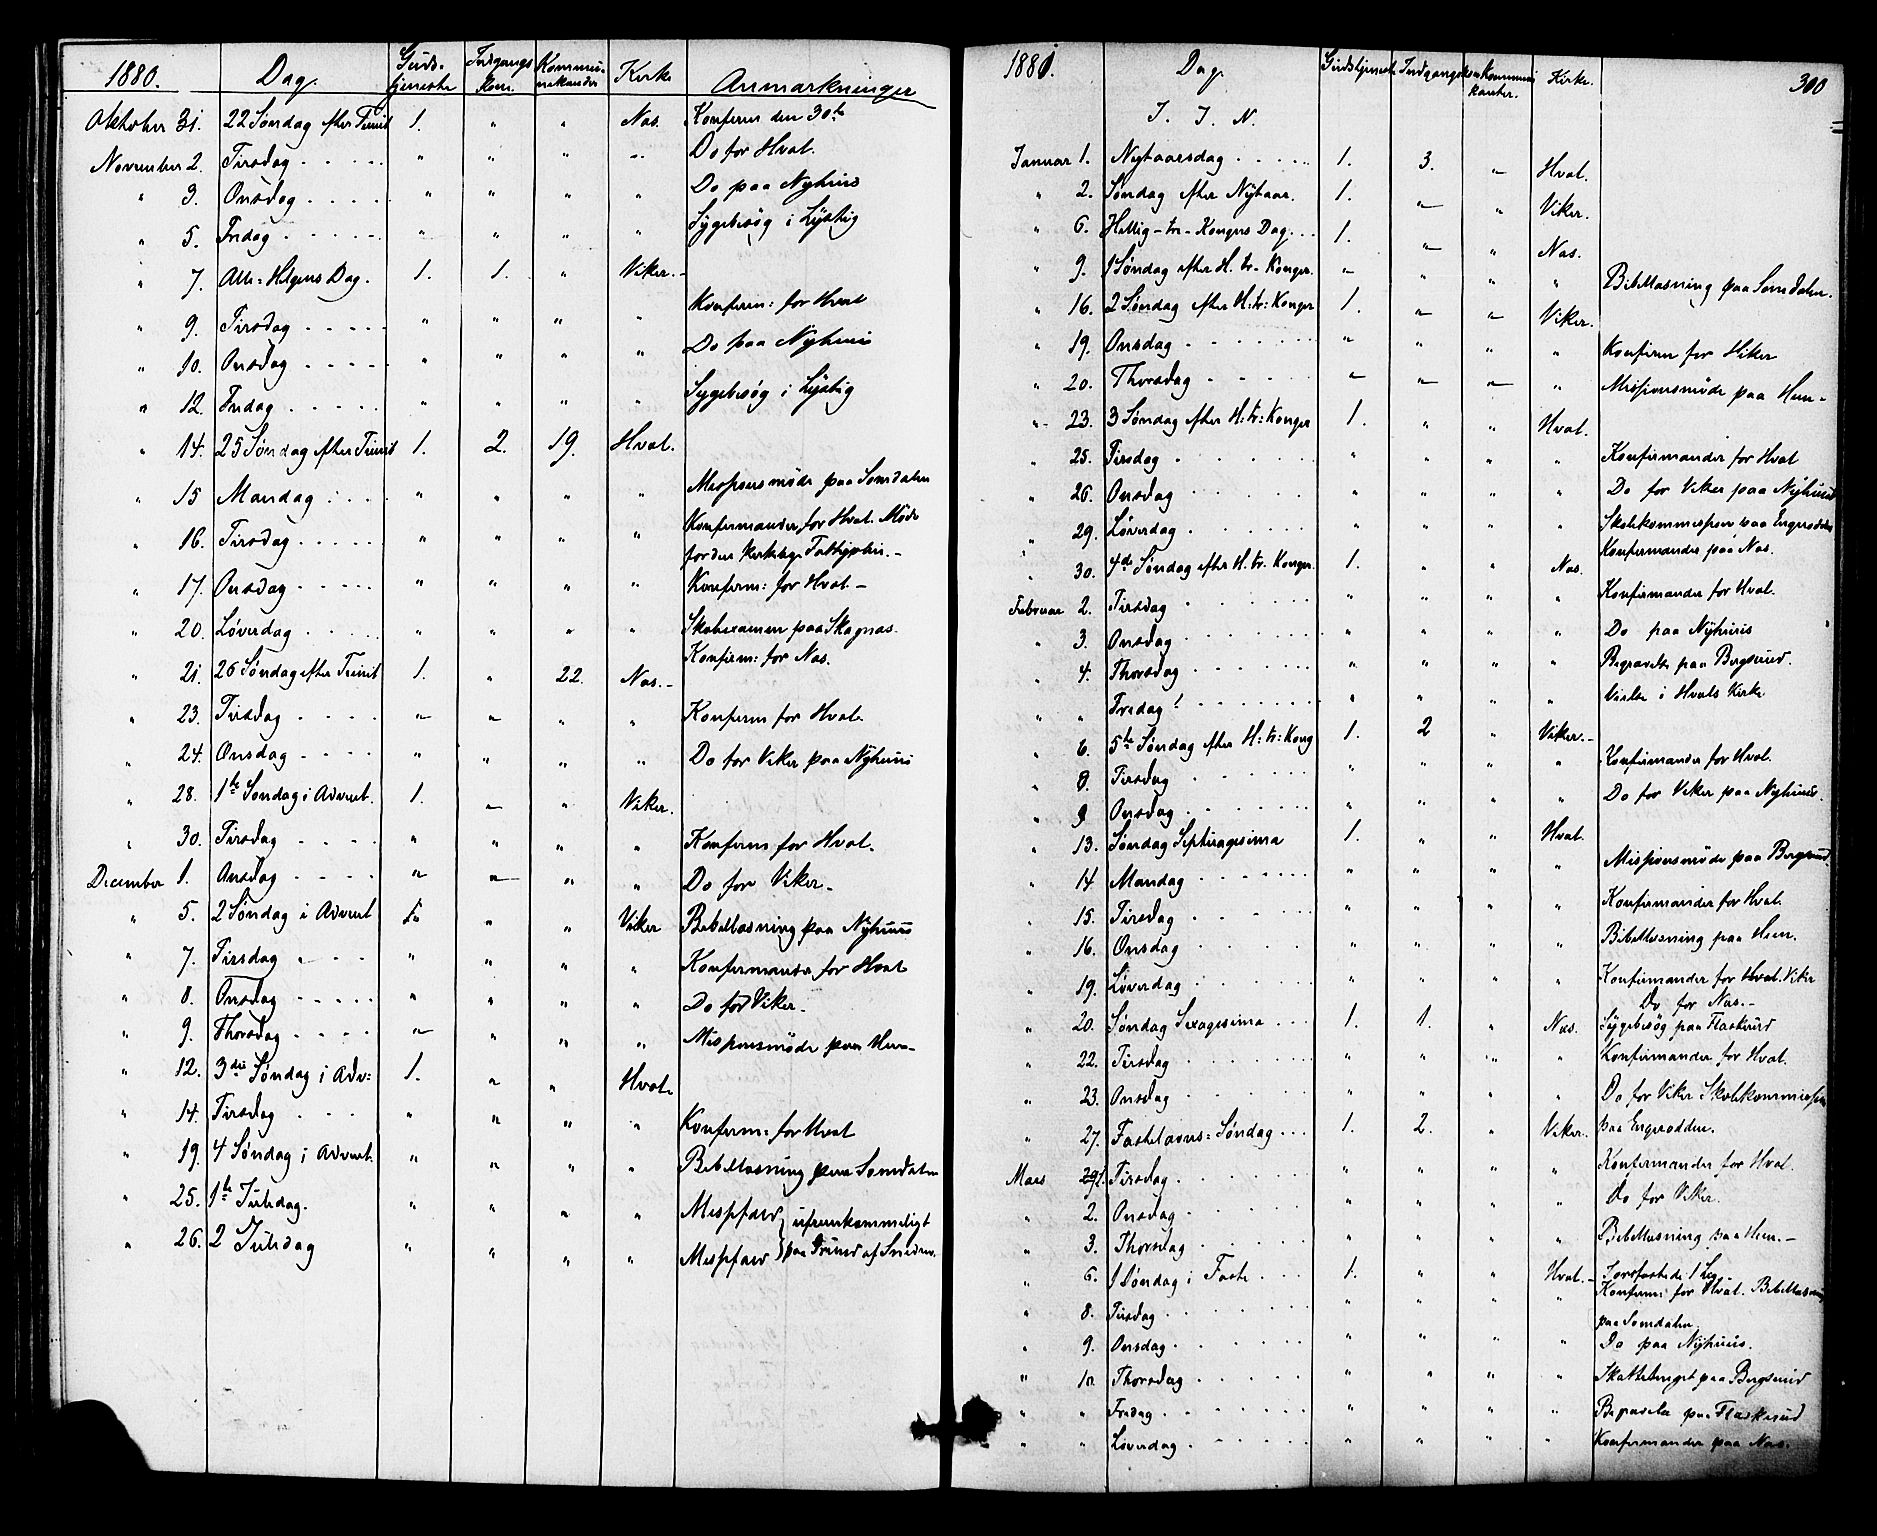 1880. Dag. Guds- tjeneste Indgangs Kon. Kommu- nikander Kirke Anmærkninger
Oktober 31. 22 Søndag efter Trinit 1. " " Næs. Konferm den 30te
November 2. Tirsdag " " " " Do for Hval.
" 3. Onsdag " " " " Do paa Nyhuus
" 5. Fredag " " " " Sygebesøg i
" 7. Alle=Helgens Dag. 1. 1. " Viker.-
" 9. Tirsdag " " " Konferm: for Hval
" 10. Onsdag " " " " Do paa Nyhuus
" 12. Fredag " " " " Sygebesøg i
" 14. 25 Søndag efter Trinit 1. 2. 19. Hval.
" 15 Mandag " " " " Missionsmøde paa Somdalen
" 16. Tirsdag " " " " Konfermander for Hval. Møde
for den kirkelige
" 17. Onsdag " " " " Konferm: for Hval-
" 20. Løverdag " " " " Skoleexamen paa Skagnæs.
Konferm: for Næs.
" 21. 26 Søndag efter Trinit 1. " 22. Næs.-
" 23. Tirsdag " " " " Konferm for Hval.
" 24. Onsdag " " " " Do for Viker paa Nyhuus
" 28. 1te Søndag i Advent. 1. " " Viker.
" 30. Tirsdag " " " " Konferm for Hval.
December 1. Onsdag " " " " Do for Viker-
" 5. 2 Søndag i Advent 1. " " Viker Bibellæsning paa Nyhuus
" 7. Tirsdag " " " " Konfermander for Hval
" 8. Onsdag " " " " Do for Viker-
" 9. Thorsdag " " " " Missionsmøde paa Hem-
" 12. 3die Søndag i Adv: 1. " " Hval.
" 14. Tirsdag " " " " Konferm: for Hval
" 19. 4 Søndag i Advent. " " " " Bibellæsning paa Somdalen
" 25. 1te Juledag. " " " " Messefald } ufremkommeligt
" 26. 2 Juledag " " " " Messefald } paa Grund af Sneden.
1881. Dag. Gudstjeneste Indgangskon Kommuni kanter. Kirke. 300
I. J. N.
Januar 1. Nytaarsdag 1. 3. " Hval.
" 2. Søndag efter Nytaar. 1. " " Viker.
" 6. Hellig-tre-Kongers Dag 1. " " Næs.
" 9. 1 Søndag efter H. tr- Konger. " " " " Bibellæsning paa Somdalen.
" 16. 2 Søndag efter H: tr: Konger 1. " " Viker.
" 19. Onsdag " " " " Konferm for Viker
" 20. Thorsdag " " " " Missionsmøde paa Hem-
" 23. 3 Søndag efter H: tr: Konger 1. " " Hval.
" 25. Tirsdag " " " " Konfirmander for Hval
" 26. Onsdag " " " " Do for Viker paa Nyhuus
" 29. Løverdag " " " " Skolekommission paa Engerodden
Konfermander paa Næs.
" 30. 4de Søndag efter H. tr. Konger. 1. " " Næs.
Februar 2. Tirsdag " " " " Konfirmander for Hval.
" 3. Onsdag " " " " Do paa Nyhuus
" 4. Thorsdag " " " " Begravelse paa Bergsund.
" " Fredag " " " " Vielse i Hvals Kirke
" 6. 5te Søndag efter H: tr: Kong 1. 2 " Viker.-
" 8. Tirsdag " " " " Konfermander for Hval.
" 9 Onsdag " " " " Do for Viker paa Nyhuus.
" 13. Søndag Septuagesima 1. " " Hval.
" 14 Mandag " " " " Missionsmøde paa Bergsund.
" 15. Tirsdag " " " " Konfermander for Hval.
" 16. Onsdag " " " " Bibellæsning paa Hem.
" 19. Løverdag " " " " Konfirmander for Hval. Viker
Do for Næs.-
" 20. Søndag Sexagesima 1. 1. " Næs. Sygebesøg paa Flaskerud
" 22. Tirsdag " " " " Konfirmander for Hval.
" 23. Onsdag " " " " Do for Viker Skolekommission
" 27. Fastelavns=Søndag 1. 2. " Viker. paa Engerodden.
Mars 1. Tirsdag " " " " Konfermander for Hval.
" 2. Onsdag " " " " Do for Viker.
" 3. Thorsdag " " " " Bibellæsning paa Hem.-
" 6. 1 Søndag i Faste 1. " " Hval.-
" 8. Tirsdag " " " " Konferm: for Hval. Bibellæsning
paa Somdalen
" 9. Onsdag " " " " Do paa Nyhuus.
" 10 Thorsdag " " " " paa Bergsund
" " Fredag " " " " Begravelse paa Flaskerud
" " Løverdag " " " " Konfermander paa Næs.